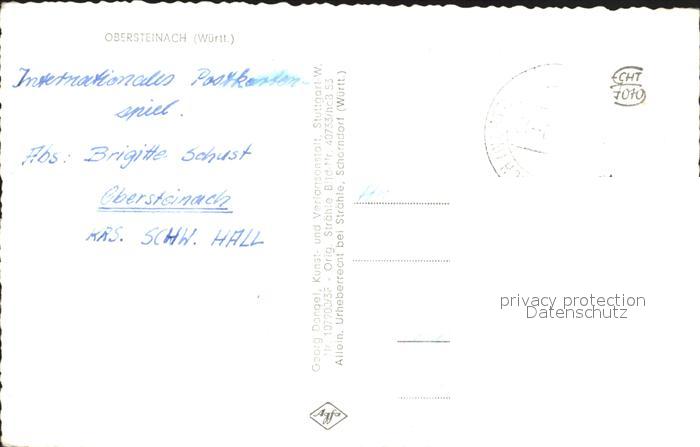 OBERSTEINACH (Württ.)
Internationales Postkarten-
spiel.
Abs: Brigitte Schust
Obersteinach
KRS. SCHW. HALL
Georg Dangel, Kunst- und Verlagsanstalt, Stuttgart W.
Nr. 107700/3F - Orig. Strähle Bild-Nr. 40733/nc3 53
Allein. Urheberrecht bei Strähle, Schorndorf (Württ.)
Agfa
ECHT
FOTO
privacy protection
Datenschutz